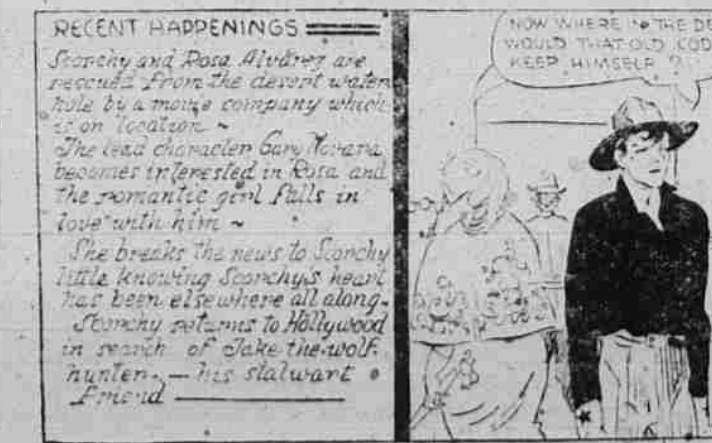 RECENT HAPPENINGS
Scorchy and Rosa Alvárez are
rescued from the desert water
hole by a movie company which
is on location ~
The lead character Gary
becomes interested in Rosa and
the romantic girl falls in
love with him ~
She breaks the news to Scorchy
little knowing Scorchy's heart
has been elsewhere all along.
Scorchy returns to Hollywood
in search of Jake the wolf
hunter, — his stalwart
friend
NOW WHERE IN THE DE
WOULD THAT OLD COD
KEEP HIMSELF ?